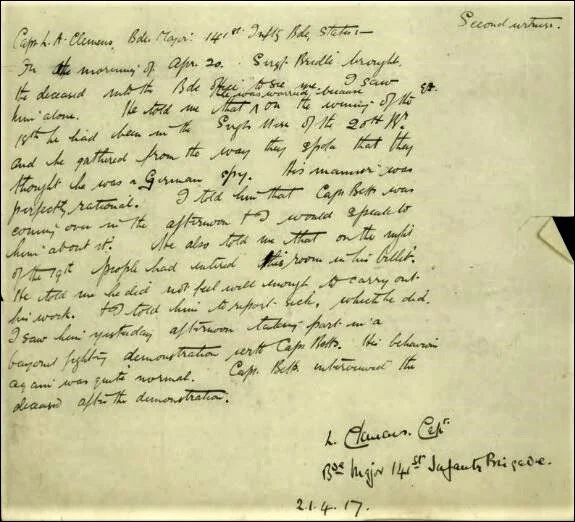 Second witness.
Capt. L. A. Clemens, Bde. Major. 141st Infty Bde, States:-
On the morning of Apr. 20. Sergt. brought
the deceased into the Bde Office to see me. I saw
him alone. He told me that he was worried because on the evening of the
18th he had been in the Sergts Mess of the 20th
and he gathered from the way they spoke that they
thought he was a German spy. His manner was
perfectly rational. I told him that Capt. Betts was
coming over in the afternoon & I would speak to
him about it. He also told me that on the night
of the 19th people had entered his room in his billet.
He told me he did not feel well enough to carry out
his work. & I told him to report sick, which he did.
I saw him yesterday afternoon taking part in a
bayonet fighting demonstration with Capt Betts. His behaviour
again was quite normal. Capt. Betts interviewed the
deceased after the demonstration.
L. Clemens. Capt
Bde Major 141st Infantry Brigade.
21.4.17.